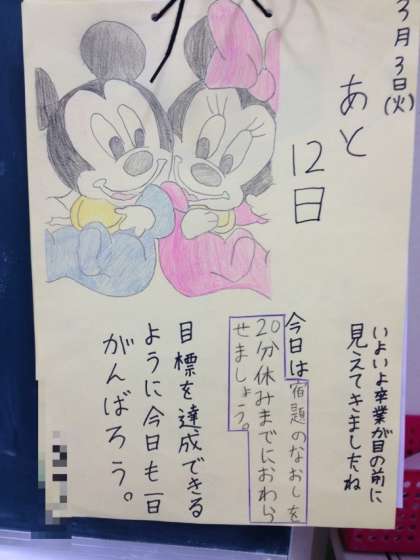 3月3日(火)
あと
12日
いよいよ卒業が目の前に
見えてきましたね
今日は宿題のなおしを
20分休みまでにおわら
せましょう。
目標を達成できる
ように今日も一日
がんばろう。